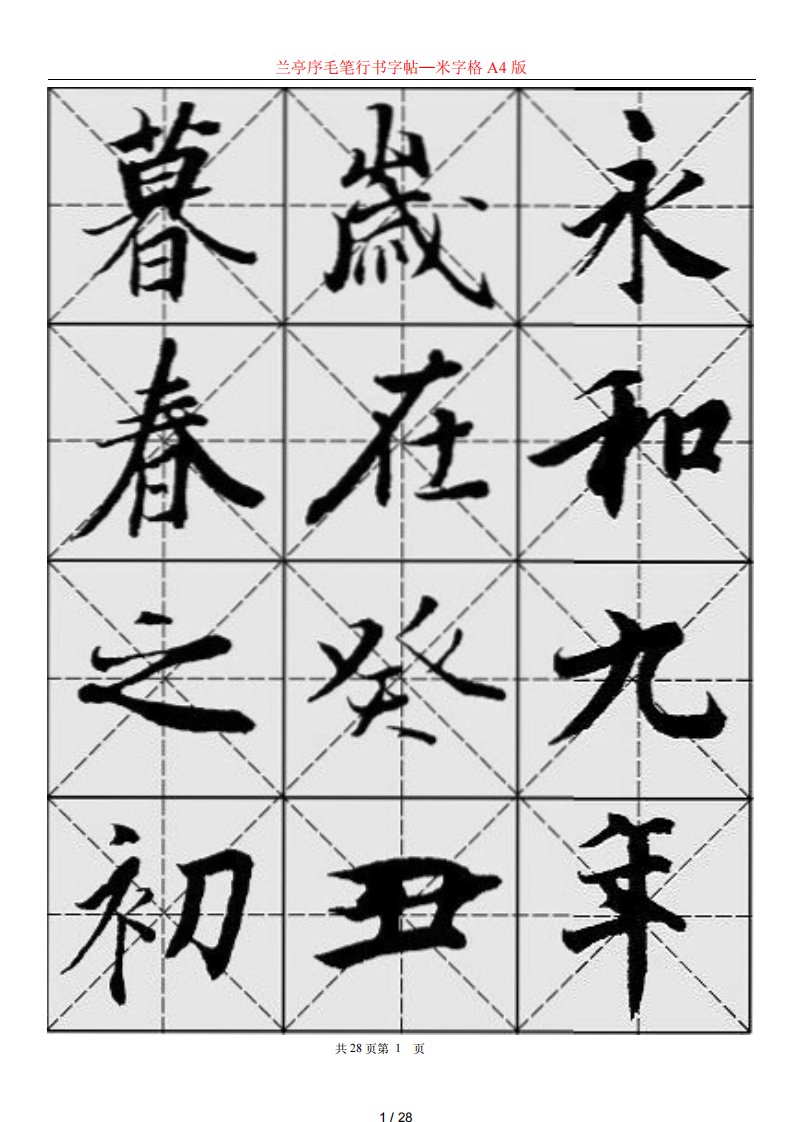 兰亭序毛笔行书字帖—米字格 A4 版
永和九年
歲在癸丑
暮春之初
共 28 页第 1 页
1 / 28